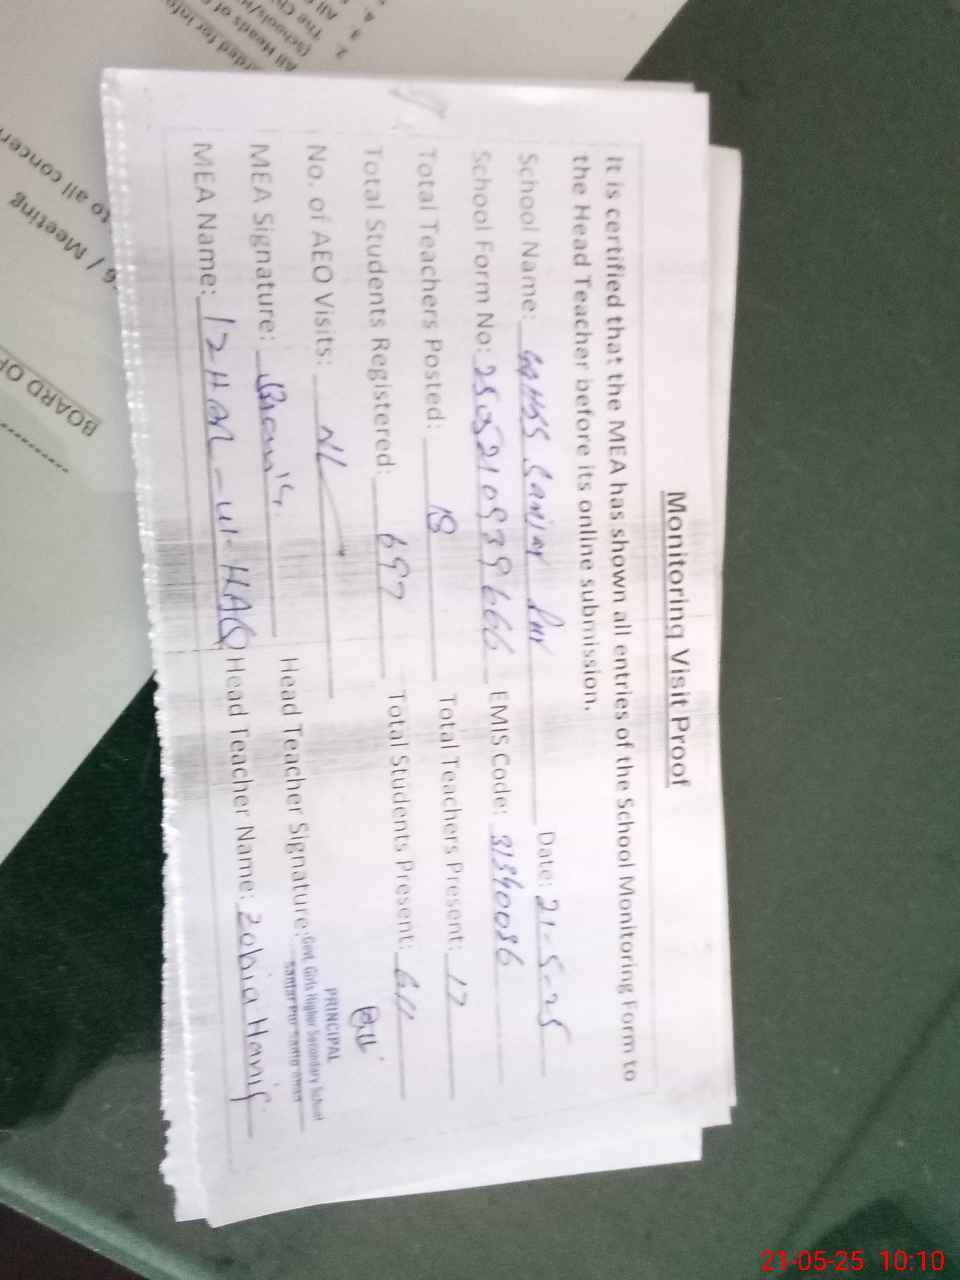 Monitoring Visit Proof
It is certified that the MEA has shown all entries of the School Monitoring Form to
the Head Teacher before its online submission.
School Name: GGHSS Sanjar Pur Date: 21-5-25
School Form No: 2505210939666 EMIS Code: 31340086
Total Teachers Posted: 18 Total Teachers Present: 17
Total Students Registered: 697 Total Students Present: 611
No. of AEO Visits: NL
MEA Signature: Head Teacher Signature:
PRINCIPAL
Govt. Girls Higher Secondary School
Sanjar Pur
MEA Name: IZHAR-ul-HAQ Head Teacher Name: Zobia Hanif
BOARD OF
/ Meeting
to all concern
All Heads of
The
All
2.
3.
4.
21-05-25 10:10